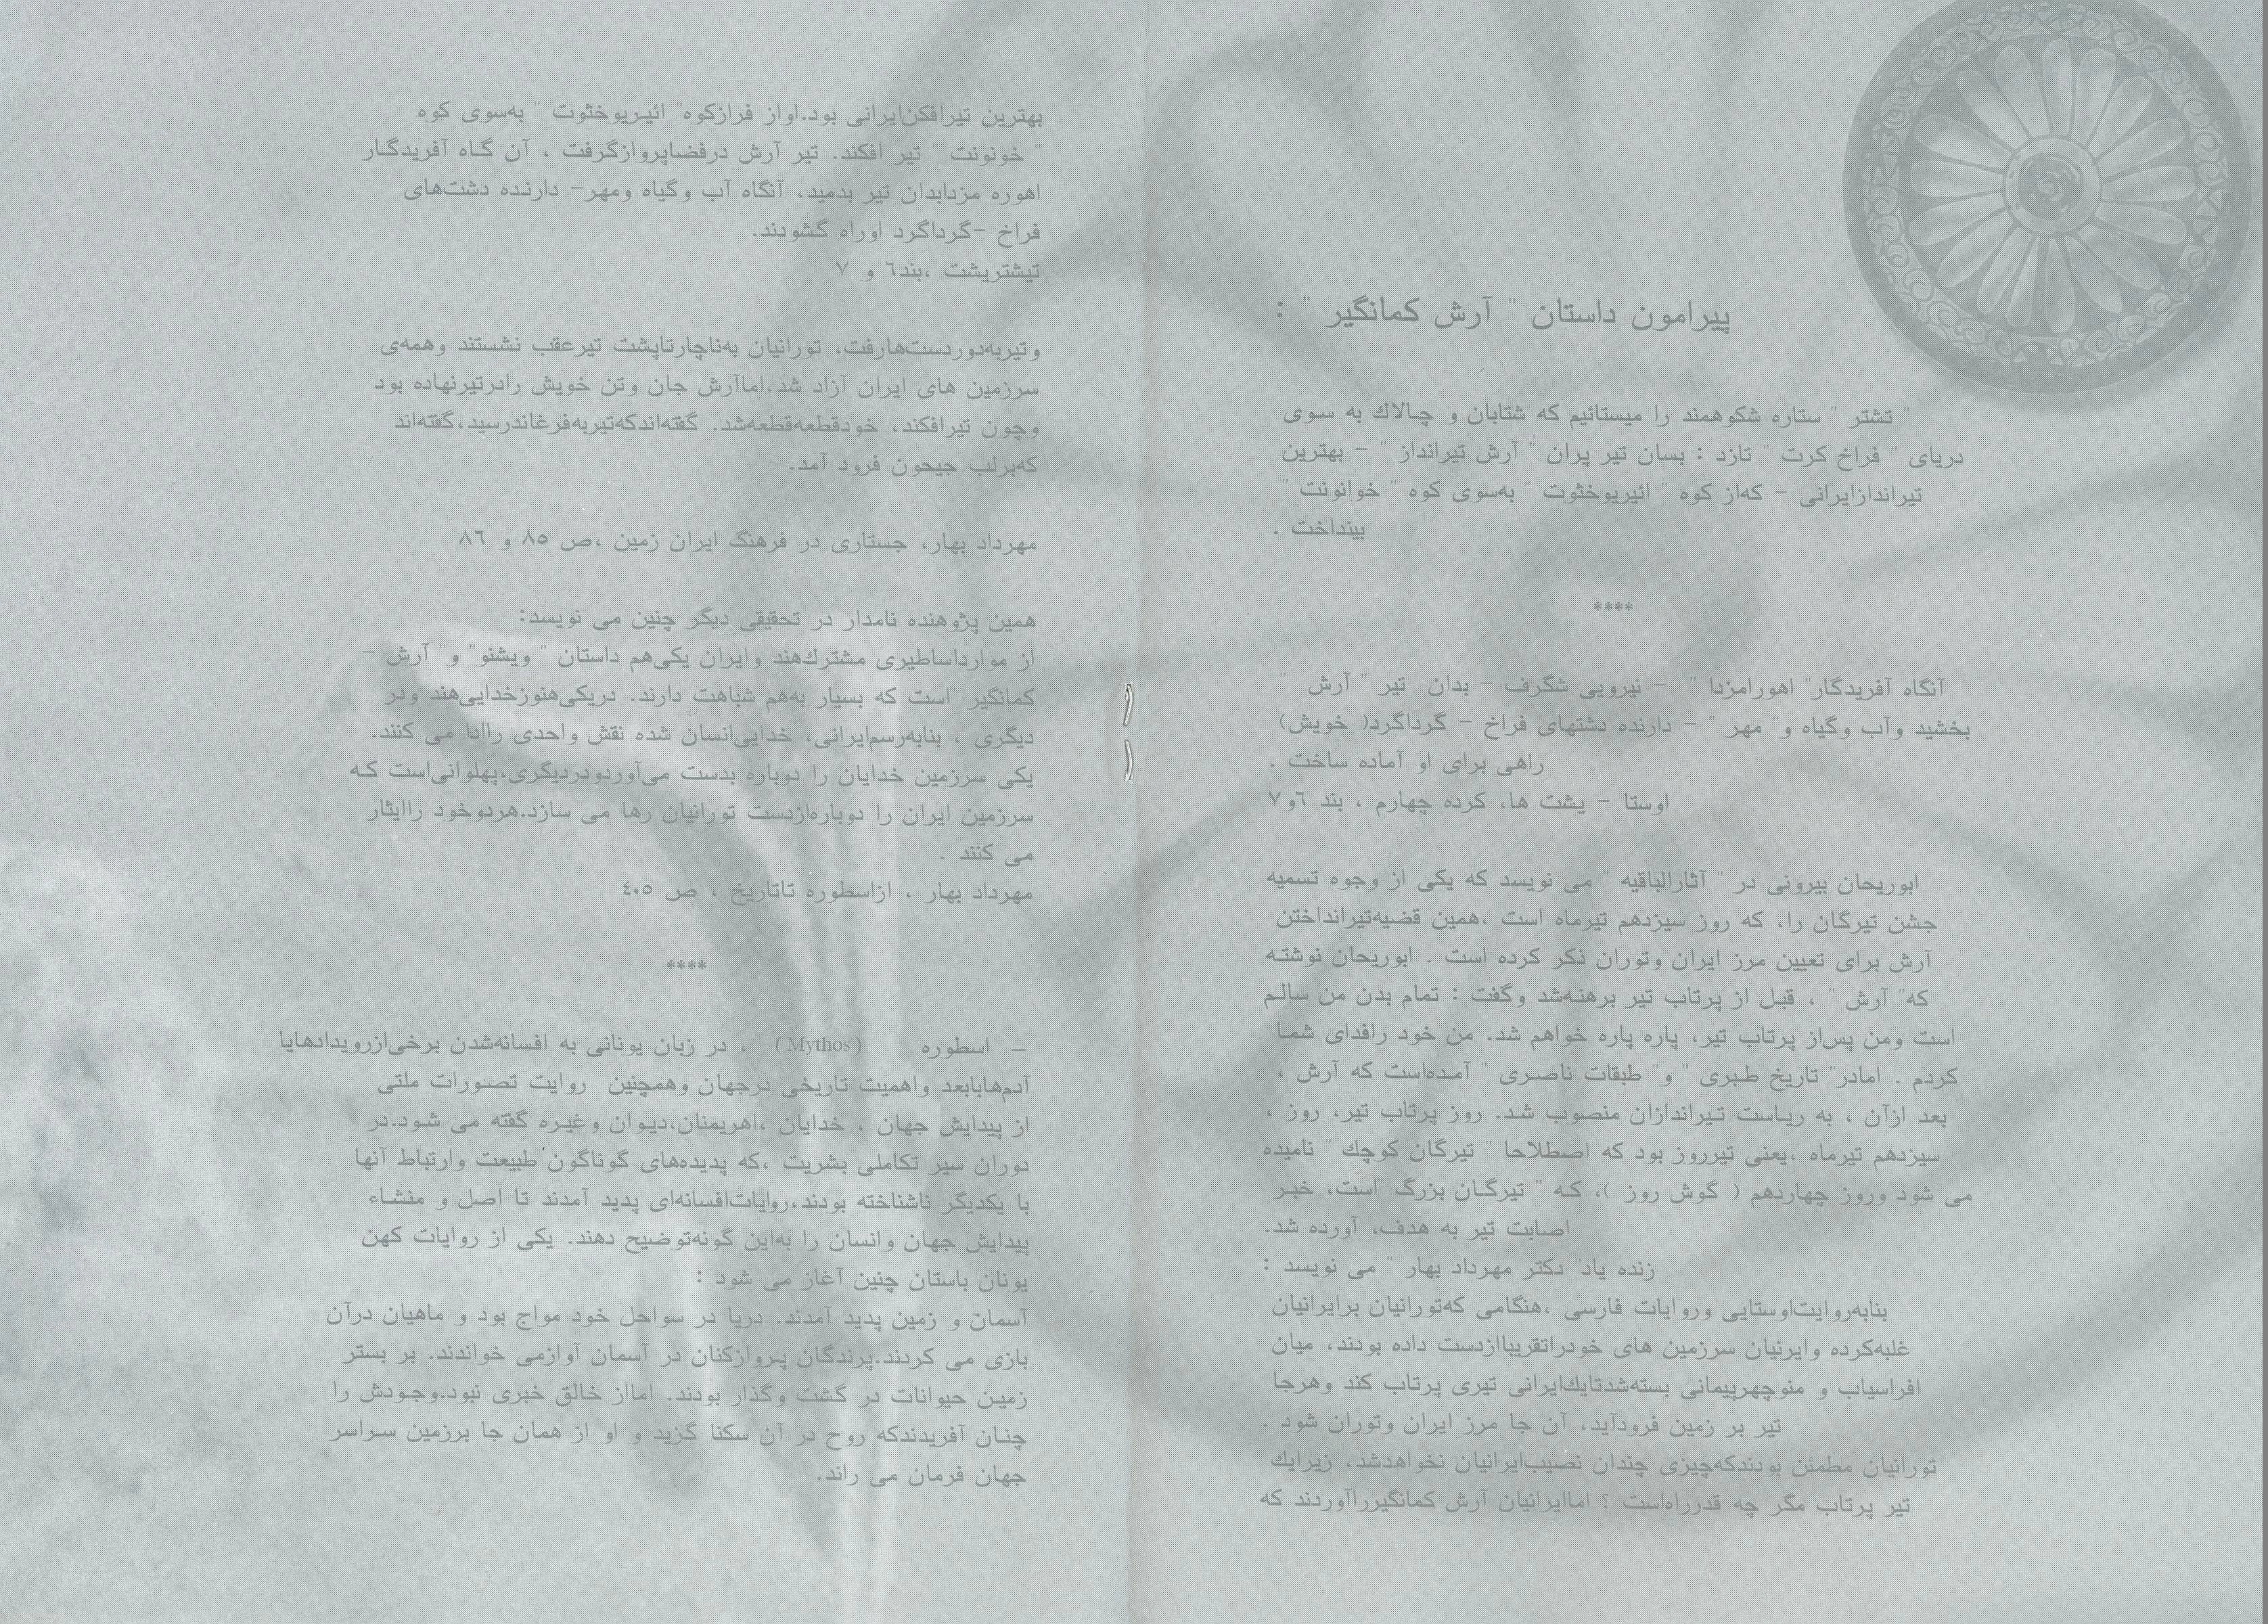 پیرامون داستان " آرش کمانگیر " :
" تشتر " ستاره شکوهمند را میستائیم که شتابان و چالاك به سوی
دریای " فراخ کرت " تازد : بسان تیر پران " آرش تیرانداز " - بهترین
تیراندازایرانی - که‌از کوه " ائیریوخثوت " به‌سوی کوه " خوانونت "
بینداخت .
****
آنگاه آفریدگار" اهورامزدا " - نیرویی شگرف - بدان تیر " آرش "
بخشید وآب وگیاه و" مهر " - دارنده دشتهای فراخ - گرداگرد( خویش)
راهی برای او آماده ساخت .
اوستا - یشت ها، کرده چهارم ، بند ٦و٧
ابوریحان بیرونی در " آثارالباقیه " می نویسد که یکی از وجوه تسمیه
جشن تیرگان را، که روز سیزدهم تیرماه است ،همین قضیه‌تیرانداختن
آرش برای تعیین مرز ایران وتوران ذکر کرده است . ابوریحان نوشته
که" آرش " ، قبل از پرتاب تیر برهنه‌شد وگفت : تمام بدن من سالم
است ومن پس‌از پرتاب تیر، پاره پاره خواهم شد. من خود رافدای شما
کردم . امادر" تاریخ طبری " و" طبقات ناصری " آمده‌است که آرش ،
بعد ازآن ، به ریاست تیراندازان منصوب شد. روز پرتاب تیر، روز ،
سیزدهم تیرماه ،یعنی تیرروز بود که اصطلاحا " تیرگان کوچك " نامیده
می شود وروز چهاردهم ( گوش روز )، که " تیرگان بزرگ "است، خبر
اصابت تیر به هدف، آورده شد.
زنده یاد" دکتر مهرداد بهار " می نویسد :
بنابه‌روایت‌اوستایی وروایات فارسی ،هنگامی که‌تورانیان برایرانیان
غلبه‌کرده وایرنیان سرزمین های خودراتقریباازدست داده بودند، میان
افراسیاب و منوچهرپیمانی بسته‌شدتایك‌ایرانی تیری پرتاب کند وهرجا
تیر بر زمین فرودآید، آن جا مرز ایران وتوران شود .
تورانیان مطمئن بودندکه‌چیزی چندان نصیب‌ایرانیان نخواهدشد، زیرایك
تیر پرتاب مگر چه قدرراه‌است ؟ اماایرانیان آرش کمانگیرراآوردند که
بهترین تیرافکن‌ایرانی بود.اواز فرازکوه" ائیریوخثوت " به‌سوی کوه
" خونونت " تیر افکند. تیر آرش درفضاپروازگرفت ، آن گاه آفریدگار
اهوره مزدابدان تیر بدمید، آنگاه آب وگیاه ومهر- دارنده دشت‌های
فراخ -گرداگرد اوراه گشودند.
تیشتریشت ،بند٦ و ٧
وتیربه‌دوردست‌هارفت، تورانیان به‌ناچارتاپشت تیرعقب نشستند وهمه‌ی
سرزمین های ایران آزاد شد،اماآرش جان وتن خویش رادرتیرنهاده بود
وچون تیرافکند، خودقطعه‌قطعه‌شد. گفته‌اندکه‌تیربه‌فرغاندرسید،گفته‌اند
که‌برلب جیحون فرود آمد.
مهرداد بهار، جستاری در فرهنگ ایران زمین ،ص ٨٥ و ٨٦
همین پژوهنده نامدار در تحقیقی دیگر چنین می نویسد:
از مواردا‌ساطیری مشترك‌هند وایران یکی‌هم داستان " ویشنو" و" آرش -
کمانگیر "است که بسیار به‌هم شباهت دارند. دریکی‌هنوزخدایی‌هند ودر
دیگری ، بنابه‌رسم‌ایرانی، خدایی‌انسان شده نقش واحدی راادا می کنند.
یکی سرزمین خدایان را دوباره بدست می‌آوردودردیگری،پهلوانی‌است که
سرزمین ایران را دوباره‌ازدست تورانیان رها می سازد.هردوخود راایثار
می کنند .
مهرداد بهار ، ازاسطوره تاتاریخ ، ص ٤٠٥
****
- اسطوره (Mythos) ، در زبان یونانی به افسانه‌شدن برخی‌ازرویدادهایا
آدم‌هابابعد واهمیت تاریخی درجهان وهمچنین روایت تصورات ملتی
از پیدایش جهان ، خدایان ،اهریمنان،دیوان وغیره گفته می شود.در
دوران سیر تکاملی بشریت ،که پدیده‌های گوناگون طبیعت وارتباط آنها
با یکدیگر ناشناخته بودند،روایات‌افسانه‌ای پدید آمدند تا اصل و منشاء
پیدایش جهان وانسان را به‌این گونه‌توضیح دهند. یکی از روایات کهن
یونان باستان چنین آغاز می شود :
آسمان و زمین پدید آمدند. دریا در سواحل خود مواج بود و ماهیان درآن
بازی می کردند.پرندگان پروازکنان در آسمان آوازمی خواندند. بر بستر
زمین حیوانات در گشت وگذار بودند. امااز خالق خبری نبود.وجودش را
چنان آفریدندکه روح در آن سکنا گزید و او از همان جا برزمین سراسر
جهان فرمان می راند.